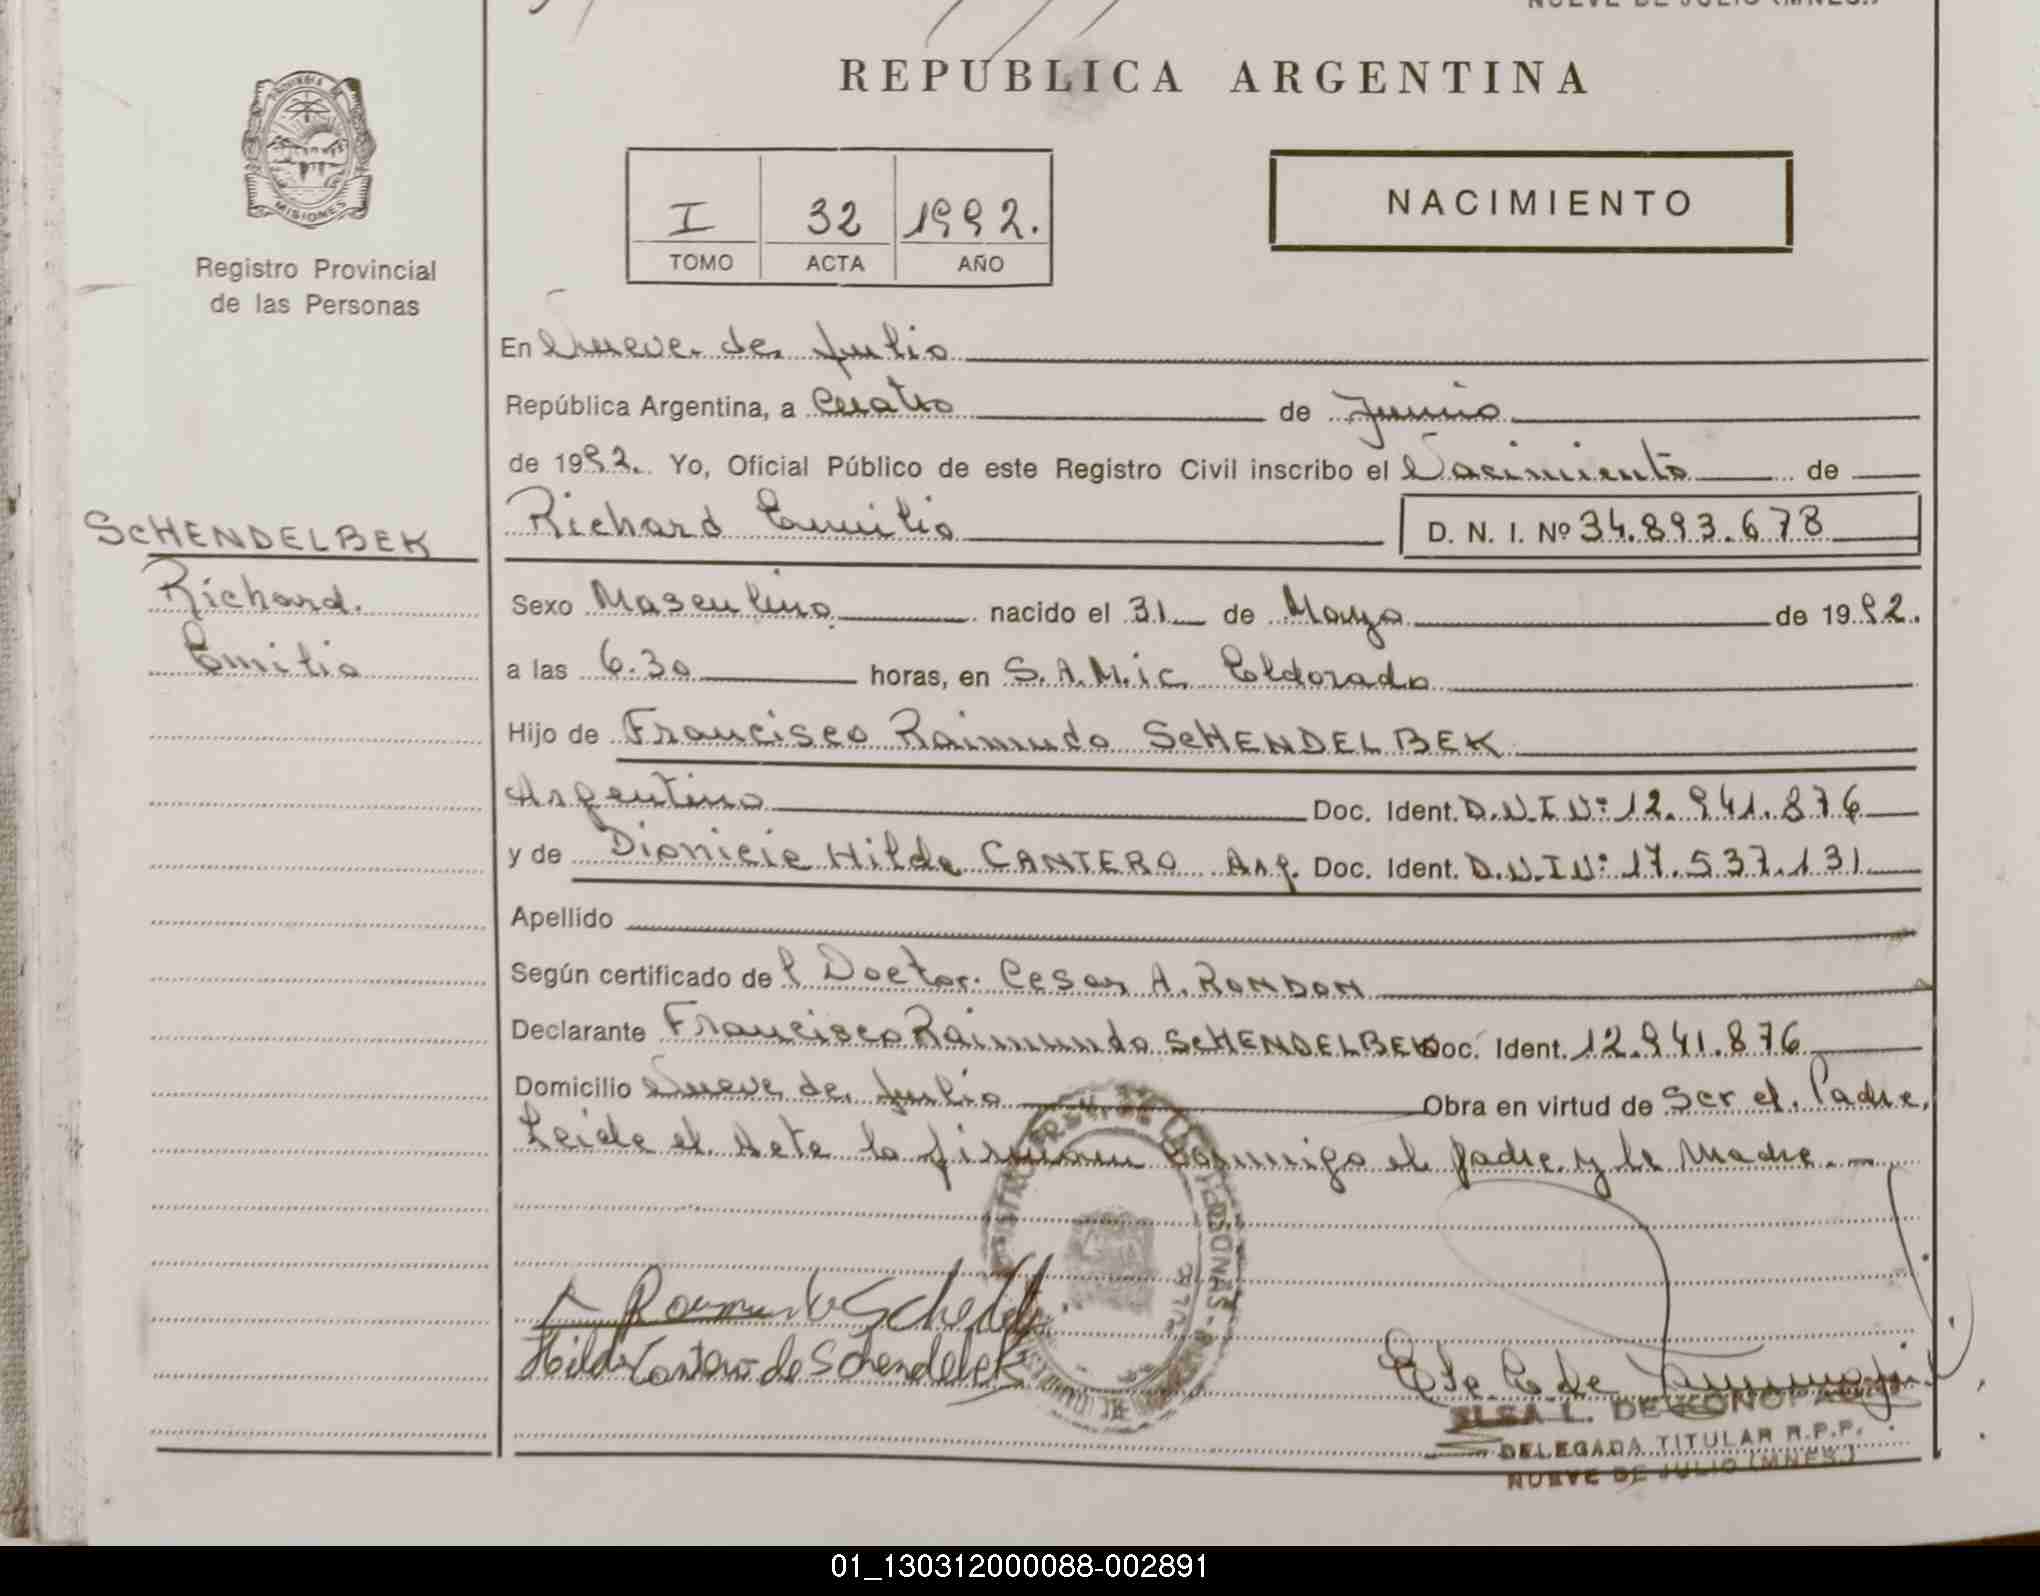 REPUBLICA ARGENTINA
PROVINCIA DE
MISIONES
Registro Provincial
de las Personas
I 32 1992.
TOMO ACTA AÑO
NACIMIENTO
En Nueve de Julio
República Argentina, a Cuatro de Junio
de 1992. Yo, Oficial Público de este Registro Civil inscribo el Nacimiento de
Richard Emilio D. N. I. Nº 34.893.678
SCHENDELBEK
Richard
Emilio
Sexo Masculino nacido el 31 de Mayo de 1992.
a las 6.30 horas, en S.A.M.ic. Eldorado
Hijo de Francisco Raimudo SCHENDELBEK
Argentino Doc. Ident. D.N.I Nº: 12.941.876
y de Dionicia Hilda CANTERO Arg. Doc. Ident. D.N.I Nº: 17.537.131
Apellido
Según certificado de l Doctor. Cesar A. RONDON
Declarante Francisco Raimundo SCHENDELBEK Doc. Ident. 12.941.876
Domicilio Nueve de Julio Obra en virtud de Ser el Padre,
Leida el Acta la firman Conmigo el padre y la Madre.-
Hilda Cantero de Schendelbek
ELSA L. DE KONOPACKI
DELEGADA TITULAR R.P.P.
NUEVE DE JULIO (MNES.)
01_130312000088-002891